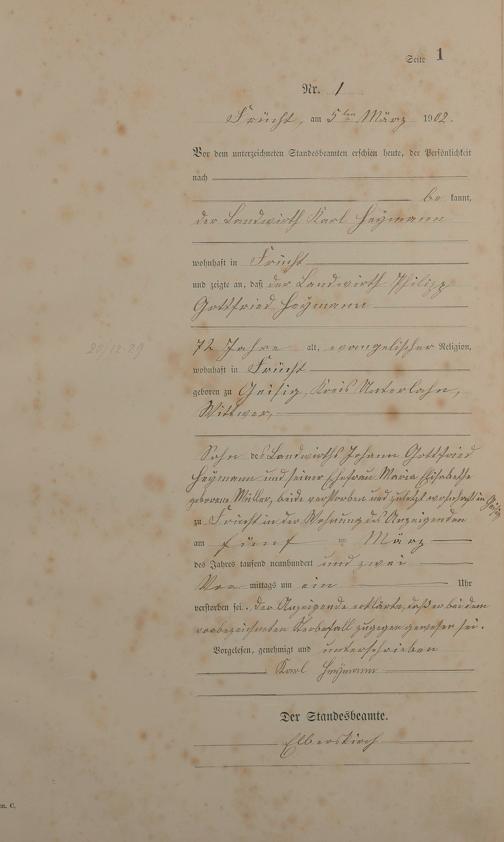 Seite 1
Nr. 1
Frücht, am 5ten März 1902.
Vor dem unterzeichneten Standesbeamten erschien heute, der Persönlichkeit
nach
be kannt,
der Landwirth Karl Heymann
wohnhaft in Frücht
und zeigte an, daß der Landwirth Philipp
Gottfried Heymann
20/12.29
72 Jahre alt, evangelischer Religion,
wohnhaft in Frücht
geboren zu Geisig, Kreis Unterlahn,
Wittwer,
Sohn des Landwirths Johann Gottfried
Heymann und seiner Ehefrau Maria Elisabethe
geborene Müller, beide verstorben und zuletzt wohnhaft in Geisig
zu Frücht in der Wohnung des Anzeigenden
am fünf = März
des Jahres tausend neunhundert und zwei
Vor mittags um ein Uhr
verstorben sei. Der Anzeigende erklärte, daß er bei dem
vorbezeichneten Sterbefall zugegen gewesen sei.
Vorgelesen, genehmigt und unterschrieben
Karl Heymann
Der Standesbeamte.
Elberskirch